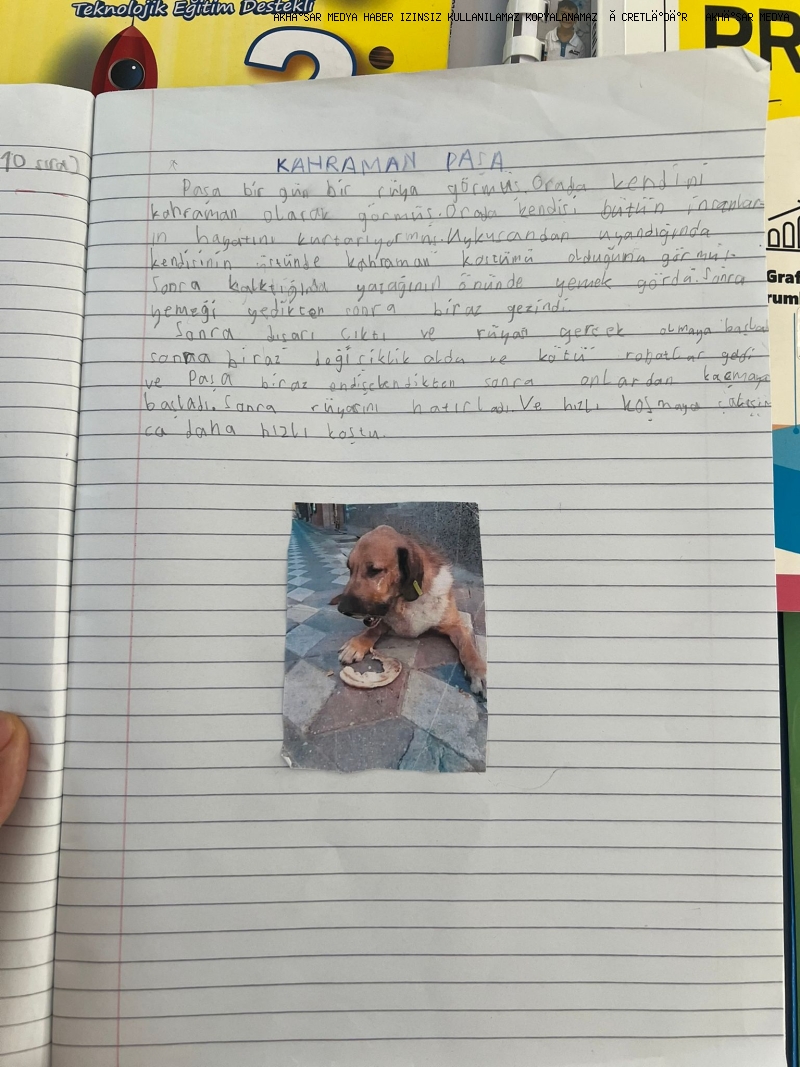 Teknolojik Eğitim Destekli
AKHA°SAR MEDYA HABER IZINSIZ KULLANILAMAZ KOPYALANAMAZ Ä CRETLÄ°DÄ°R AKHA°SAR MEDYA
2
PR
10 sıra)
KAHRAMAN PAŞA
Paşa bir gün bir rüya görmüş. Orada kendini
kahraman olarak görmüş. Orada kendisi bütün insanlar-
ın hayatını kurtarıyormuş. Uykusundan uyandığında
kendisinin üstünde kahraman kostümü olduğunu görmüş.
Sonra kalktığında yatağının önünde yemek gördü. Sonra
yemeği yedikten sonra biraz gezindi.
Sonra dışarı çıktı ve rüyası gerçek olmaya başladı
sonra biraz değişiklik oldu ve kötü robotlar geldi
ve Paşa biraz endişelendikten sonra onlardan kaçmaya
başladı. Sonra rüyasını hatırladı. Ve hızlı koşmaya
ca daha hızlı koştu.
Graf
rum